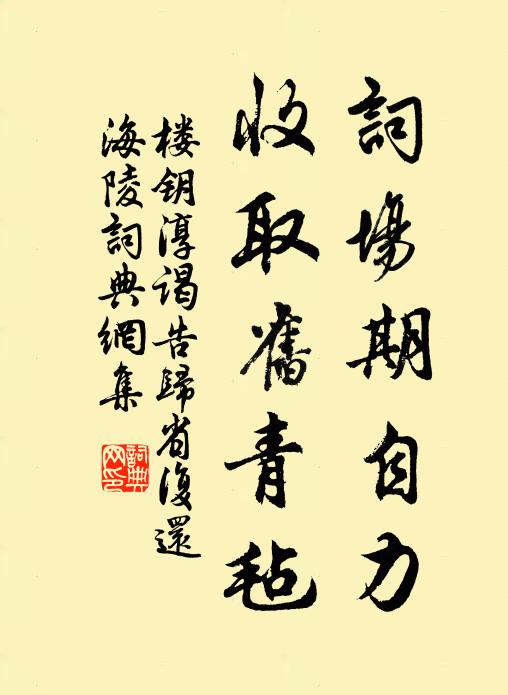 詞場期自力
收取舊青氈
楼钥淳谒告歸省復還
海陵詞典網集
詞典
网印